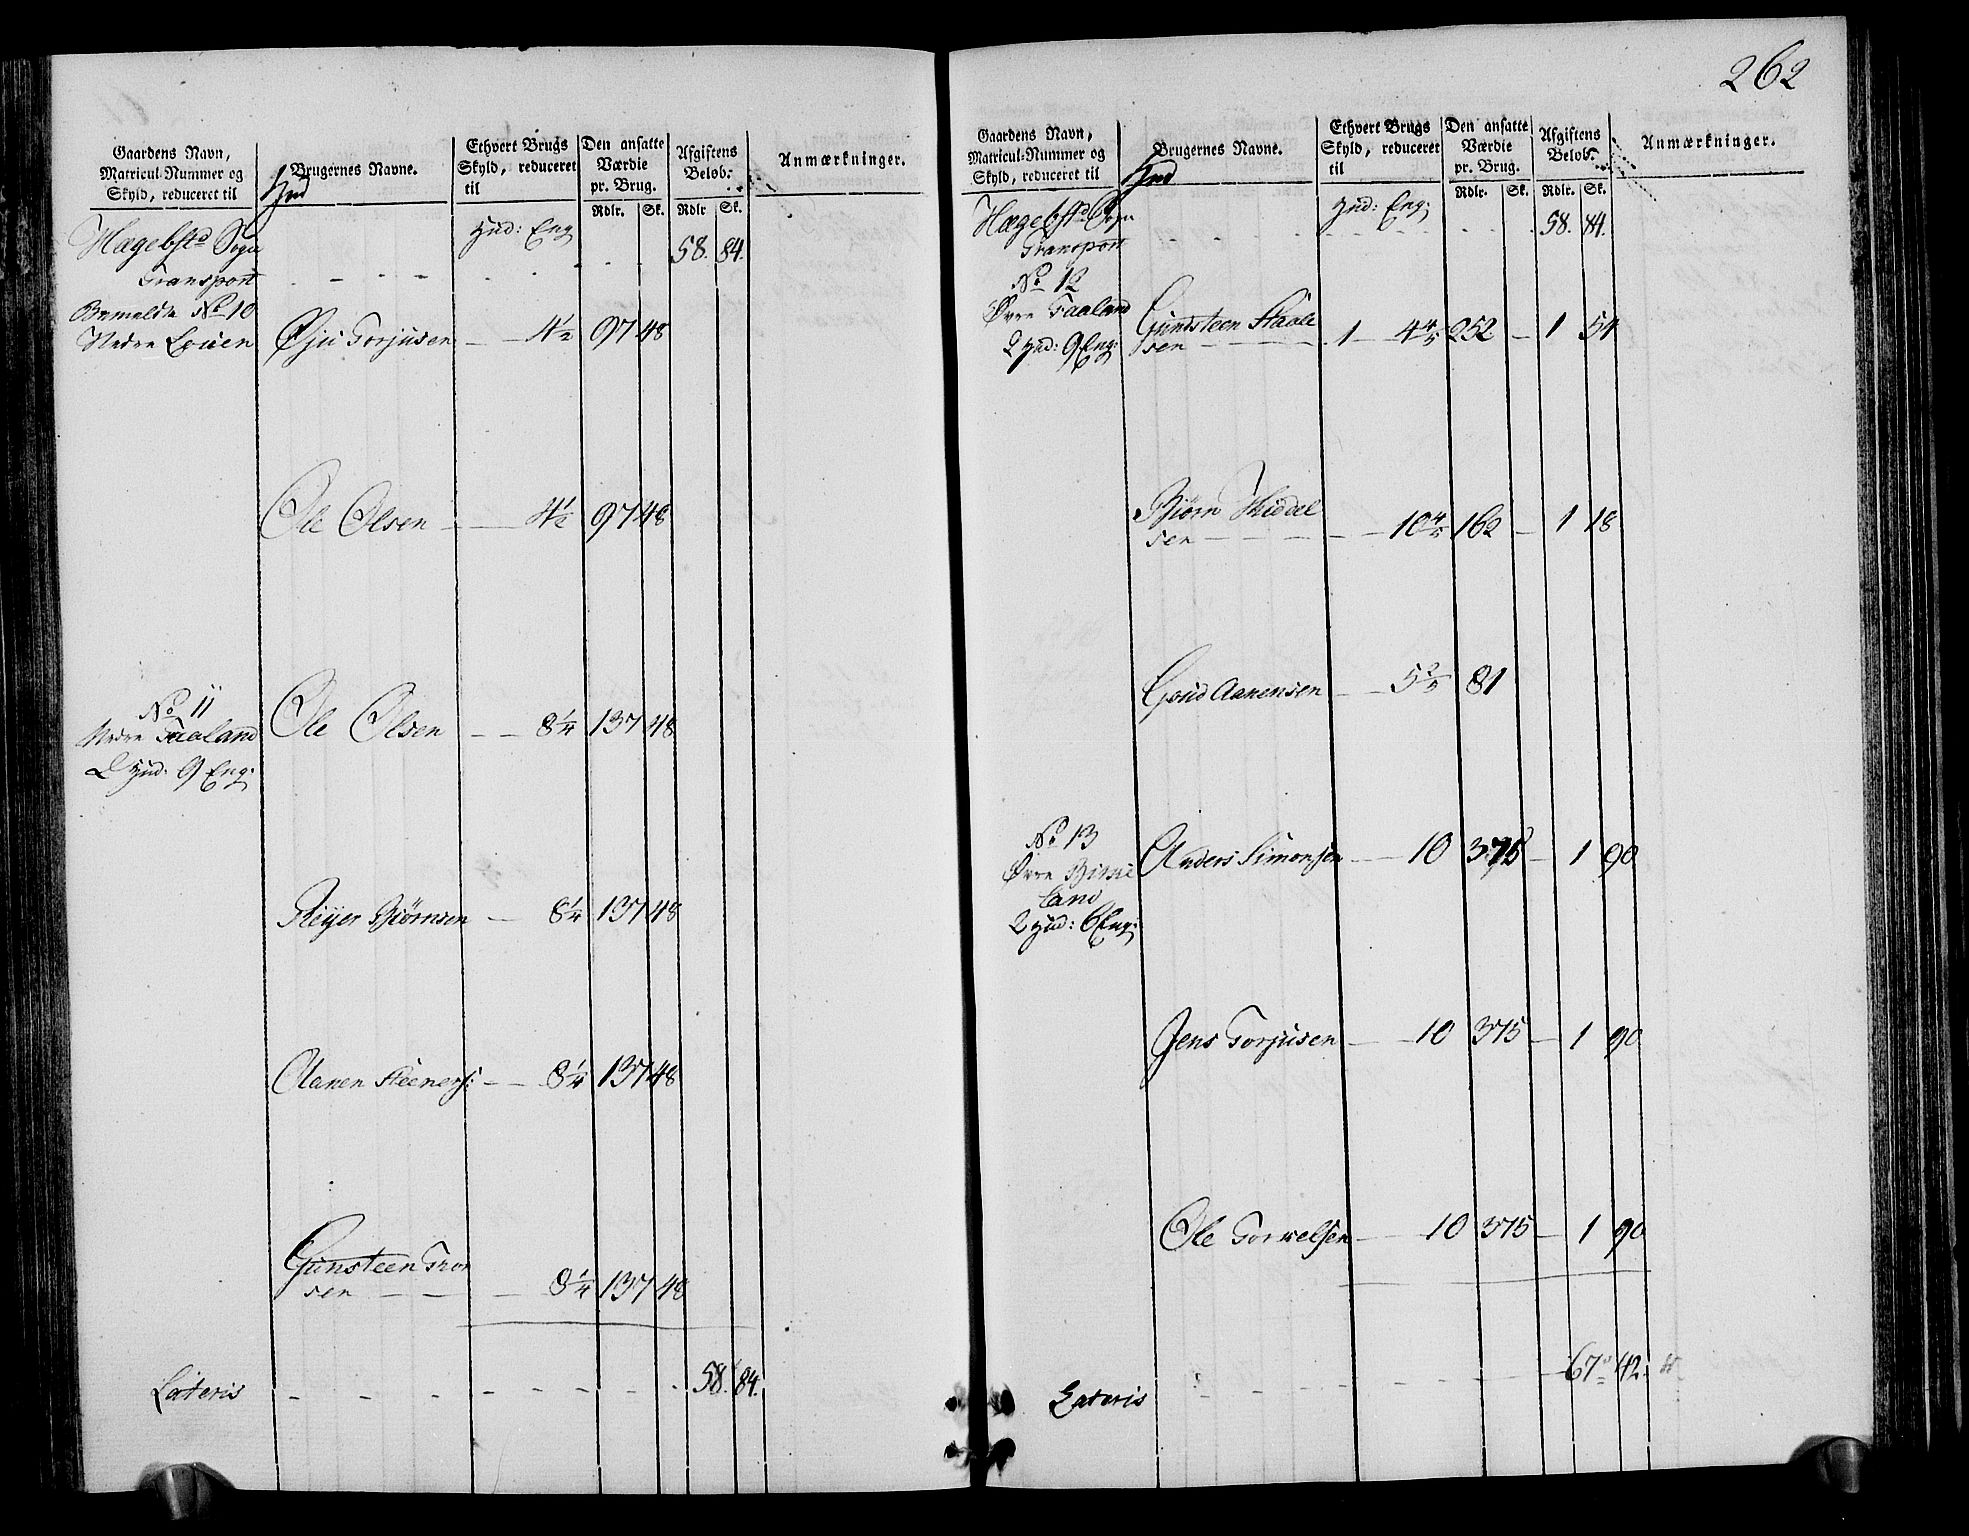 Gaardens Navn,
Matricul-Nummer og
Skyld, reduceret til
Hud
Brugernes Navne.
Ethvert Brugs
Skyld, reduceret
til
Den ansatte
Værdie
pr. Brug.
Rdlr. Sk.
Afgiftens
Beløb.
Rdlr Sk.
Anmærkninger.
Hægebstd Sogn Hud: Eng
Transport - - - - - - - 58. 84.
Bemeldte No 10
Nedre Øÿu Torjusen - - 4½ 97 48
Ole Olsen - - 4½ 97 48
No 11
Nedre Faaland Ole Olsen - - 8¼ 137 48
2 Hud: 9 Eng:
Reÿer Biørnsen - 8¼ 137 48
Aanen Steeners: - - 8¼ 137 48
Gunsteen Tron
sen - - - 8¼ 137 48
Lateris - - - - - - - 58. 84.
262
Gaardens Navn,
Matricul-Nummer og
Skyld, reduceret til
Hud
Brugernes Navne.
Ethvert Brugs
Skyld, reduceret
til
Den ansatte
Værdie
pr. Brug.
Rdlr. Sk.
Afgiftens
Beløb.
Rdlr. Sk.
Anmærkninger.
Hægebstd Sogn Hud: Eng:
Transport - - - - - - - 58. 84.
No 12
Øvre Faaland Gundsteen Staale
2 Hud: 9 Eng: sen - - - 1 - 4⅘ 252 - 1 54
Biørn
sen - - - - 10⅘ 162 - 1 18
Aanensen - - 5⅖ 81
No 13
Øvre Anders Simonsen - - 10 375 - 1 90
land
2 Hud: 6 Eng:
Jens Torjusen - - 10 375 - 1 90
Ole Torkelsen - - 10 375 - 1 90
Lateris - - - - - - - 67 42.